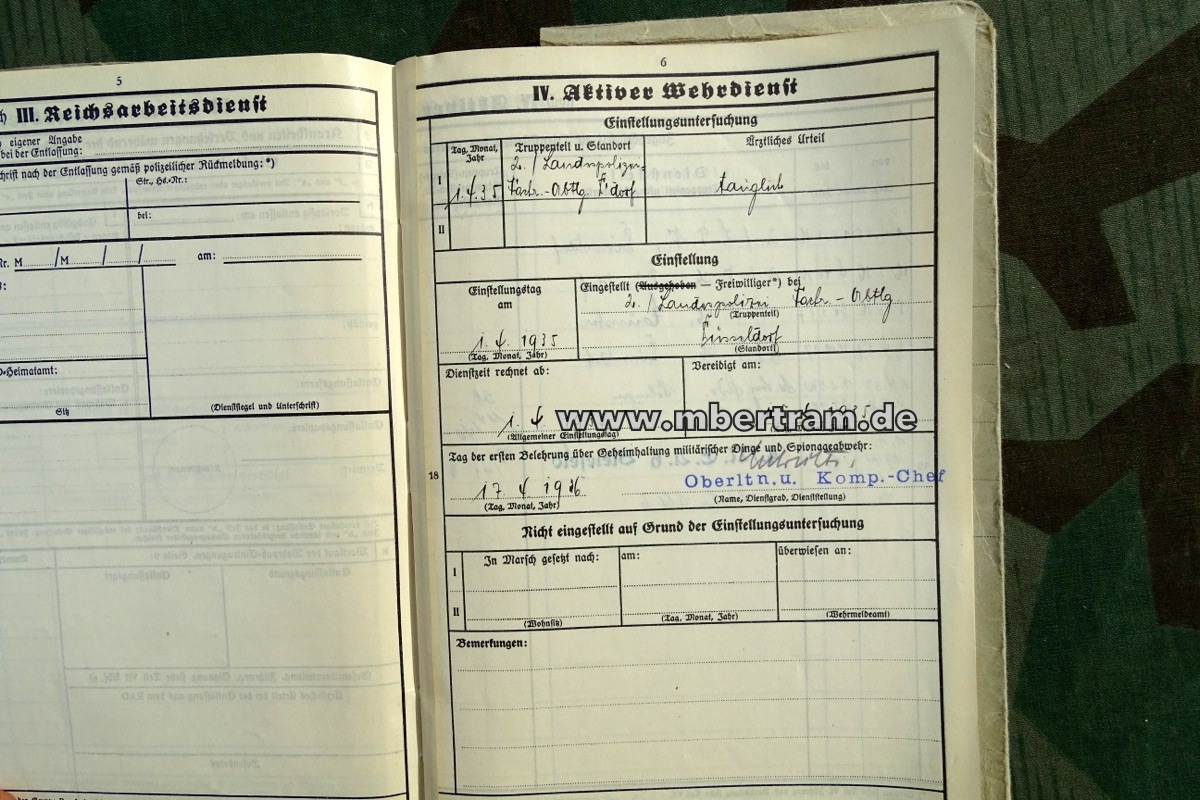 5
III. Reichsarbeitsdienst
eigener Angabe
bei der Entlassung:
nach der Entlassung gemäß polizeilicher Rückmeldung: *)
Str., Hs.-Nr.:
bei:
Nr. M /M / / am:
Heimatamt:
Sitz
(Dienstsiegel und Unterschrift)
6
IV. Aktiver Wehrdienst
Einstellungsuntersuchung
Tag, Monat, Jahr
Truppenteil u. Standort
Ärztliches Urteil
I
1.4.35
2./Landespolizei
Nachr.-Abtlg. D'dorf
tauglich
II
Einstellung
Einstellungstag
am
1. 4. 1935
(Tag, Monat, Jahr)
Eingestellt (Ausgehoben — Freiwilliger*) bei
2./Landespolizei Nachr.-Abtlg
(Truppenteil)
Düsseldorf
(Standort)
Dienstzeit rechnet ab:
1. 4
(Allgemeiner Einstellungstag)
Vereidigt am:
www.mbertram.de
18
Tag der ersten Belehrung über Geheimhaltung militärischer Dinge und Spionageabwehr:
17 4 1936
(Tag, Monat, Jahr)
Oberltn.u. Komp.-Chef
(Name, Dienstgrad, Dienststellung)
Nicht eingestellt auf Grund der Einstellungsuntersuchung
In Marsch gesetzt nach:
am:
überwiesen an:
I
II
(Wohnsitz)
(Tag, Monat, Jahr)
(Wehrmeldeamt)
Bemerkungen: